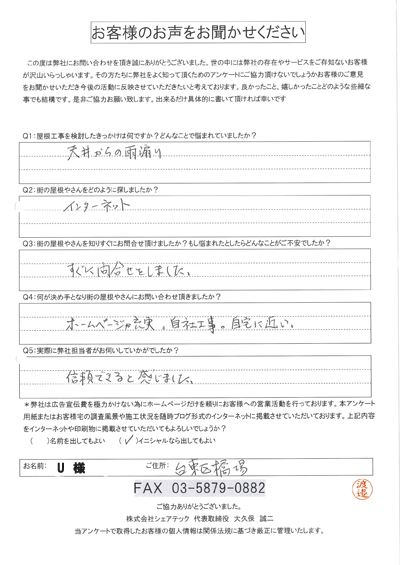 お客様のお声をお聞かせください
この度は弊社にお問い合わせを頂き誠にありがとうございました。世の中には弊社の存在やサービスをご存知ないお客様
が沢山いらっしゃいます。その方たちに弊社をよく知って頂くためのアンケートにご協力頂けないでしょうかお客様のご意見
をお聞かせいただき今後の活動に反映させていただきたいと考えております。良かったこと、嬉しかったことどのような些細な
事でも結構です。是非ご協力お願い致します。出来るだけ具体的に書いて頂ければ幸いです
Q1:屋根工事を検討したきっかけは何ですか?どんなことで悩まれていましたか?
天井からの雨漏り
Q2:街の屋根やさんをどのように探しましたか?
インターネット
Q3:街の屋根やさんを知りすぐにお問合せ頂けましたか?もし悩まれたとしたらどんなことがご不安でしたか?
すぐに問合せをしました。
Q4:何が決め手となり街の屋根やさんにお問い合わせ頂きましたか?
ホームページが充実。自社工事。自宅に近い。
Q5:実際に弊社担当者がお伺いしていかがでしたか?
信頼できると感じました。
*弊社は広告宣伝費を極力かけない為にホームページだけを頼りにお客様への営業活動を行っております。本アンケート
用紙またはお客様宅の調査風景や施工状況を随時ブログ形式のインターネットに掲載させていただいております。上記内容
をインターネットや印刷物に掲載させていただいてもよろしいでしょうか?
( )名前を出してもよい (✓)イニシャルなら出してもよい
お名前: U 様 ご住所: 台東区橋場
FAX 03-5879-0882
渡邉
ご協力ありがとうございました。
株式会社シェアテック 代表取締役 大久保 誠二
当アンケートで取得したお客様の個人情報は関係法規に基づき厳正に管理いたします。